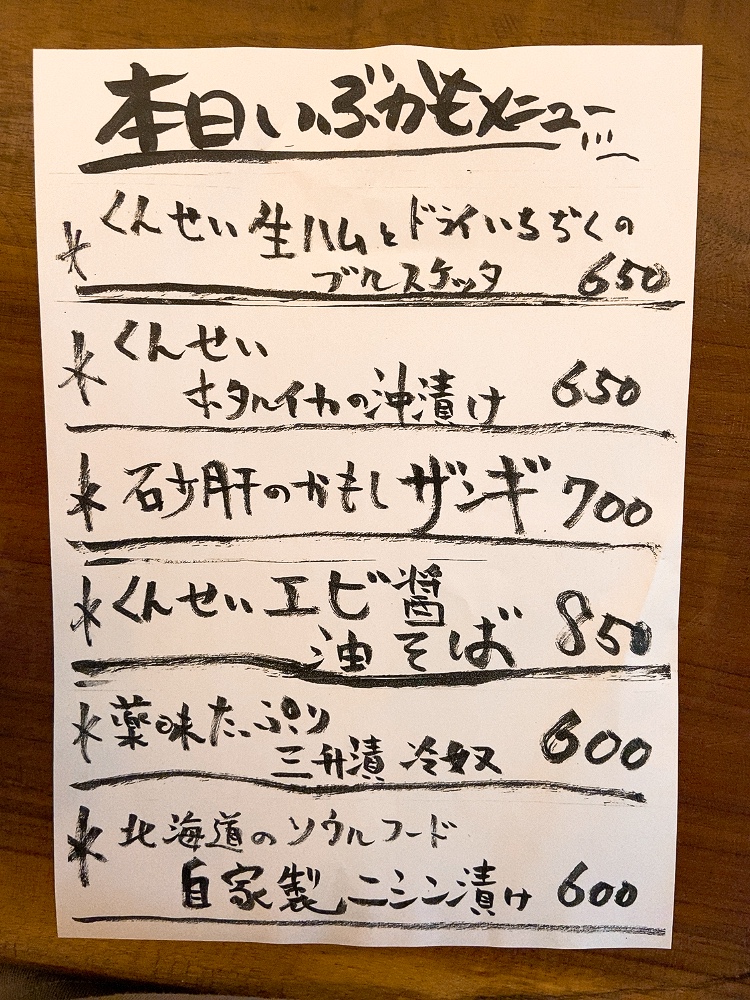 本日いぶかもメニュー
くんせい生ハムとドライいちぢくの
ブルスケッタ 650
くんせい
ホタルイカの沖漬け 650
砂肝のかもしザンギ 700
くんせいエビ醤
油そば 850
薬味たっぷり
三升漬 冷奴 600
北海道のソウルフード
自家製ニシン漬け 600